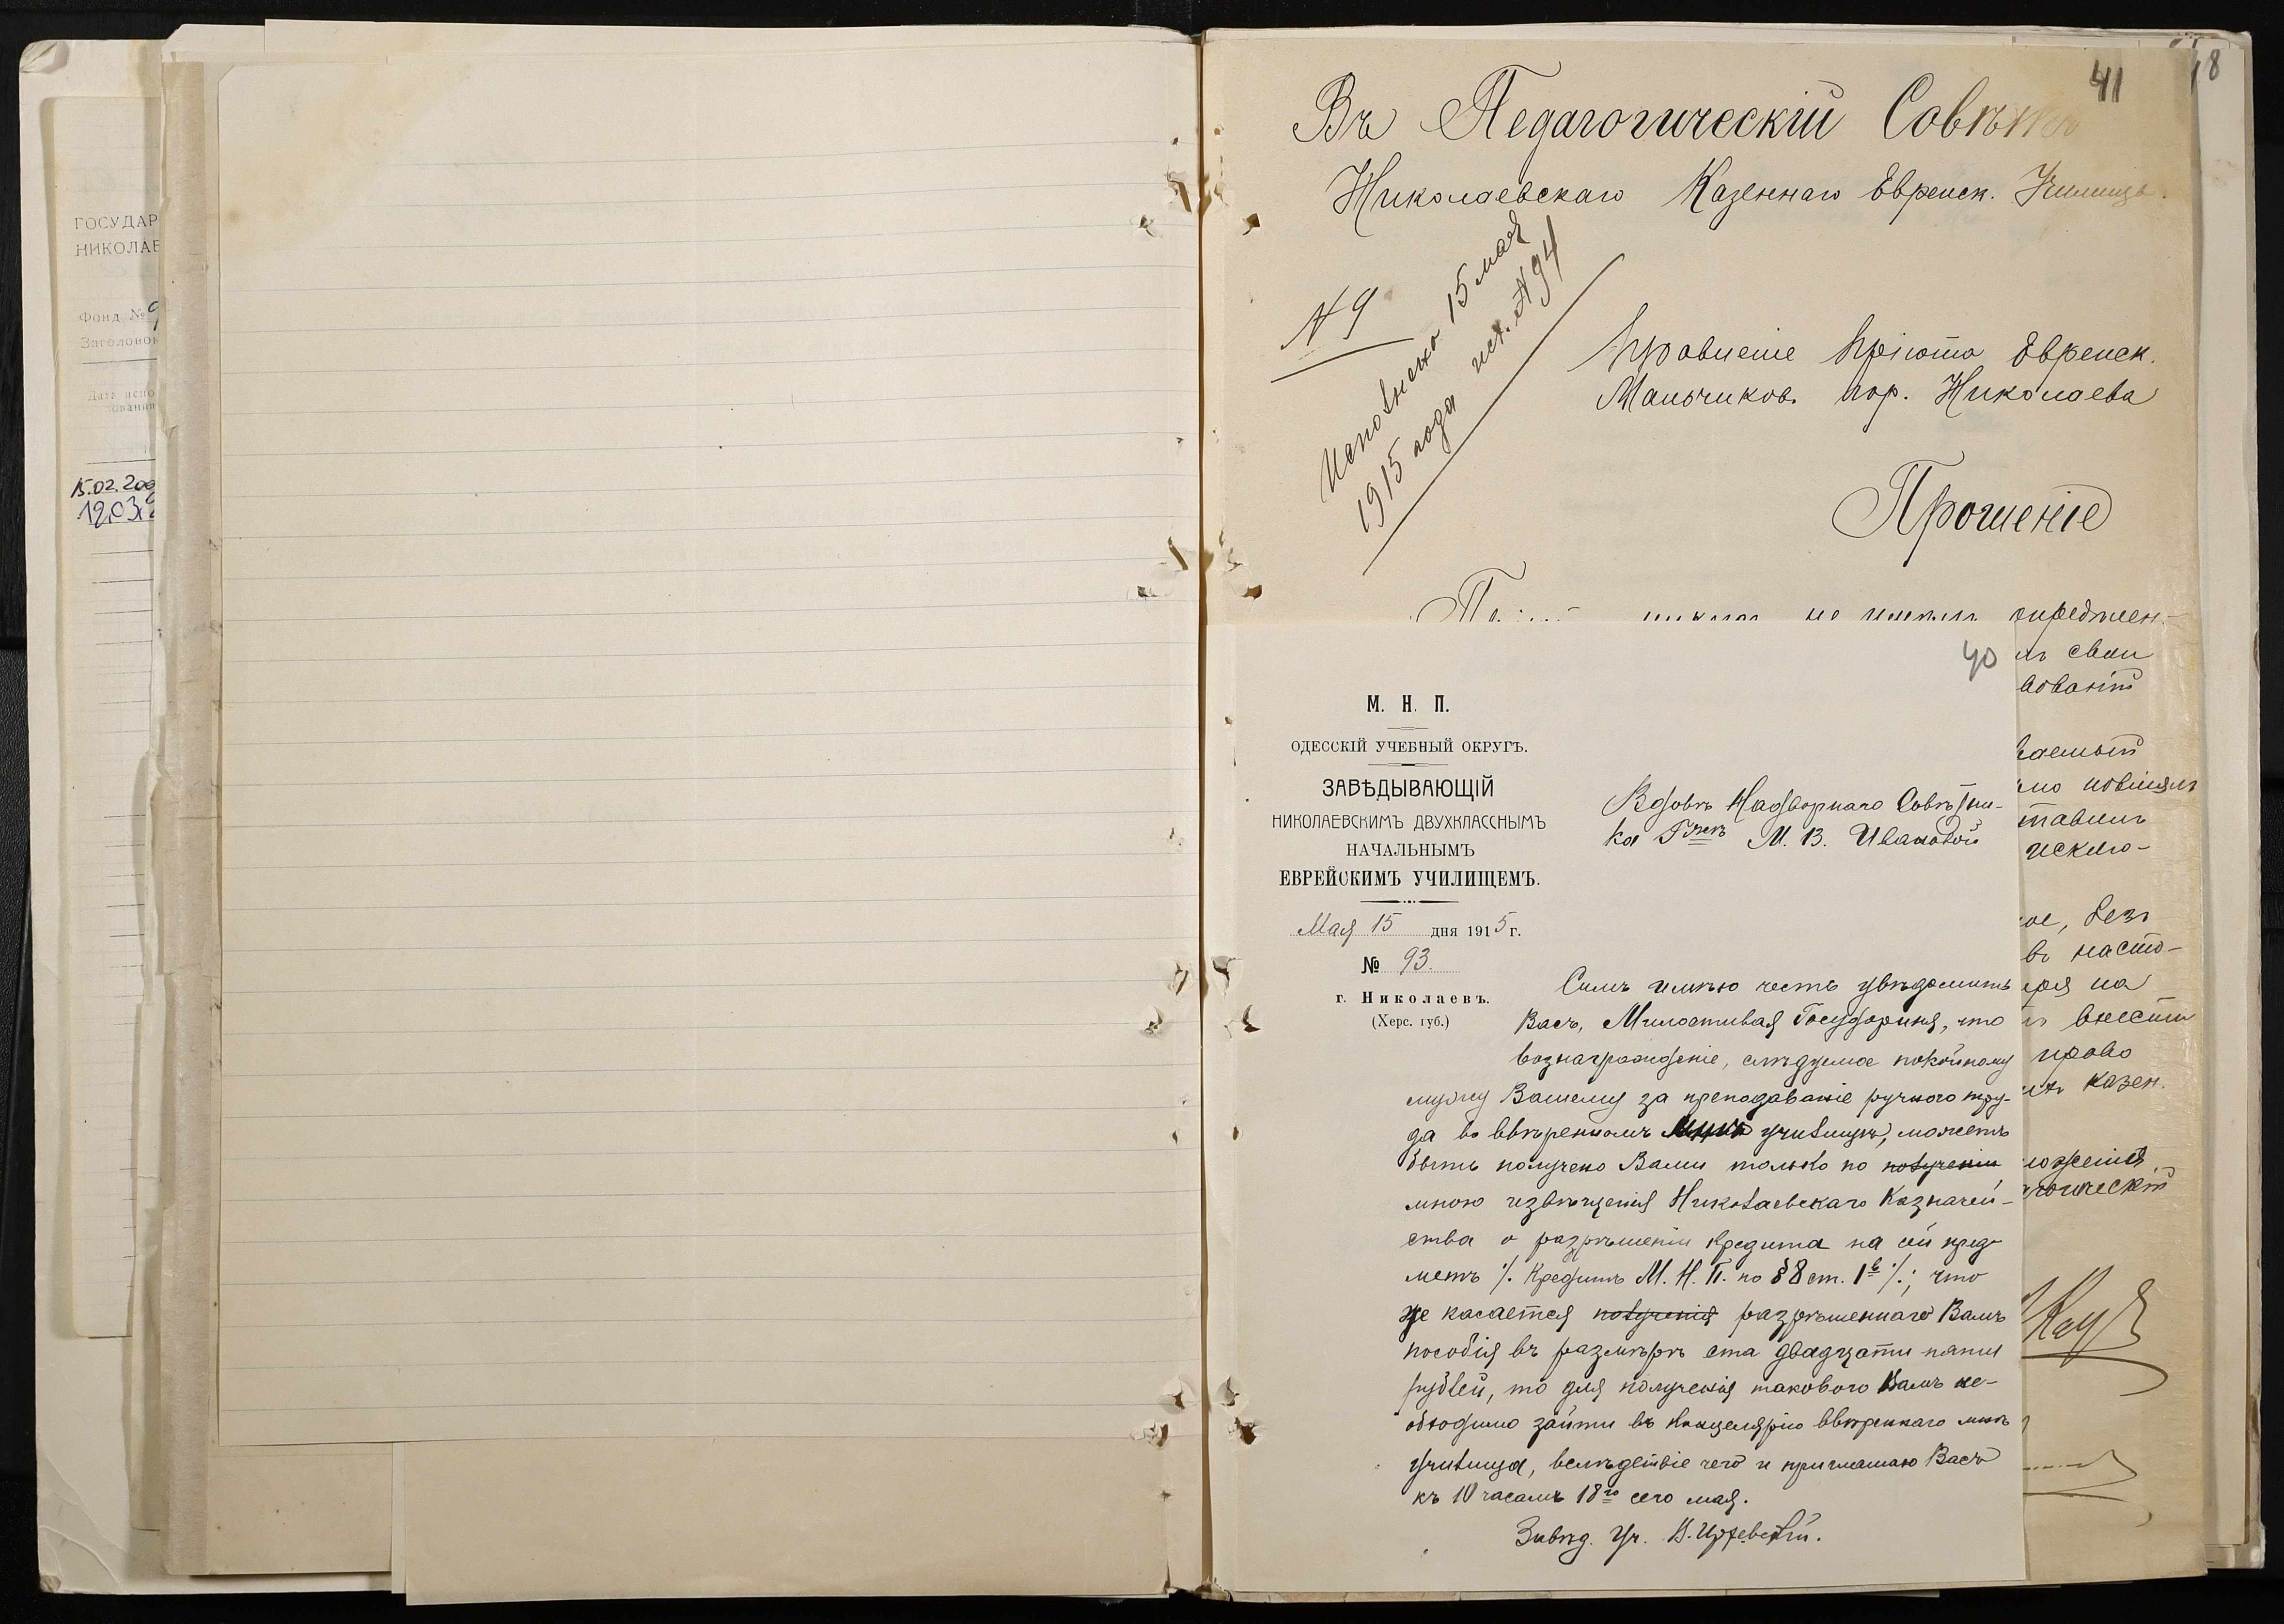 ГОСУДАР
НИКОЛАЕ
Фонд №9
Заголовок
Дата испо
зования
15.02.200
12.03.2
41
18
Въ Педагогическій Совѣтъ
Николаевскаго Казеннаго Еврейск. Училища.
№ 9
Исполнено 15 мая
1915 года исх. № 94
Правленіе Пріюта Еврейск.
Мальчиков гор. Николаева
Прошеніе
не имѣлъ опредѣлен-
40
свои
М. Н. П.
ОДЕССКІЙ УЧЕБНЫЙ ОКРУГЪ.
ЗАВѢДЫВАЮЩІЙ
НИКОЛАЕВСКИМЪ ДВУХКЛАССНЫМЪ
НАЧАЛЬНЫМЪ
ЕВРЕЙСКИМЪ УЧИЛИЩЕМЪ.
Мая 15 дня 1915 г.
№ 93.
г. Николаевъ.
(Херс. губ.)
Вдовѣ Надворнаго Совѣтни-
ка Г-жѣ М. В. Ивановой
Симъ имѣю честь увѣдомить
Васъ, Милостивая Государыня, что
вознагражденіе, слѣдуемое покойному
мужу Вашему за преподаваніе ручного тру-
да во ввѣренномъ мнѣ училищѣ, можетъ
быть получено Вами только по полученіи
мною извѣщенія Николаевскаго Казначей-
ства о разрѣшеніи кредита на сей пред-
метъ ⁒ Кредитъ М. Н. П. по § 8 ст. 1 ⁒; что
же касается полученія разрѣшеннаго Вамъ
пособія въ размѣрѣ ста двадцати пяти
рублей, то для полученія такового Вамъ не-
обходимо зайти въ канцелярію ввѣреннаго мнѣ
училища, вслѣдствіе чего и приглашаю Васъ
къ 10 часамъ 18го сего мая.
Завѣд. Уч.
искл­ю-
ое, безъ
въ насто-
на
внести
право
казен.